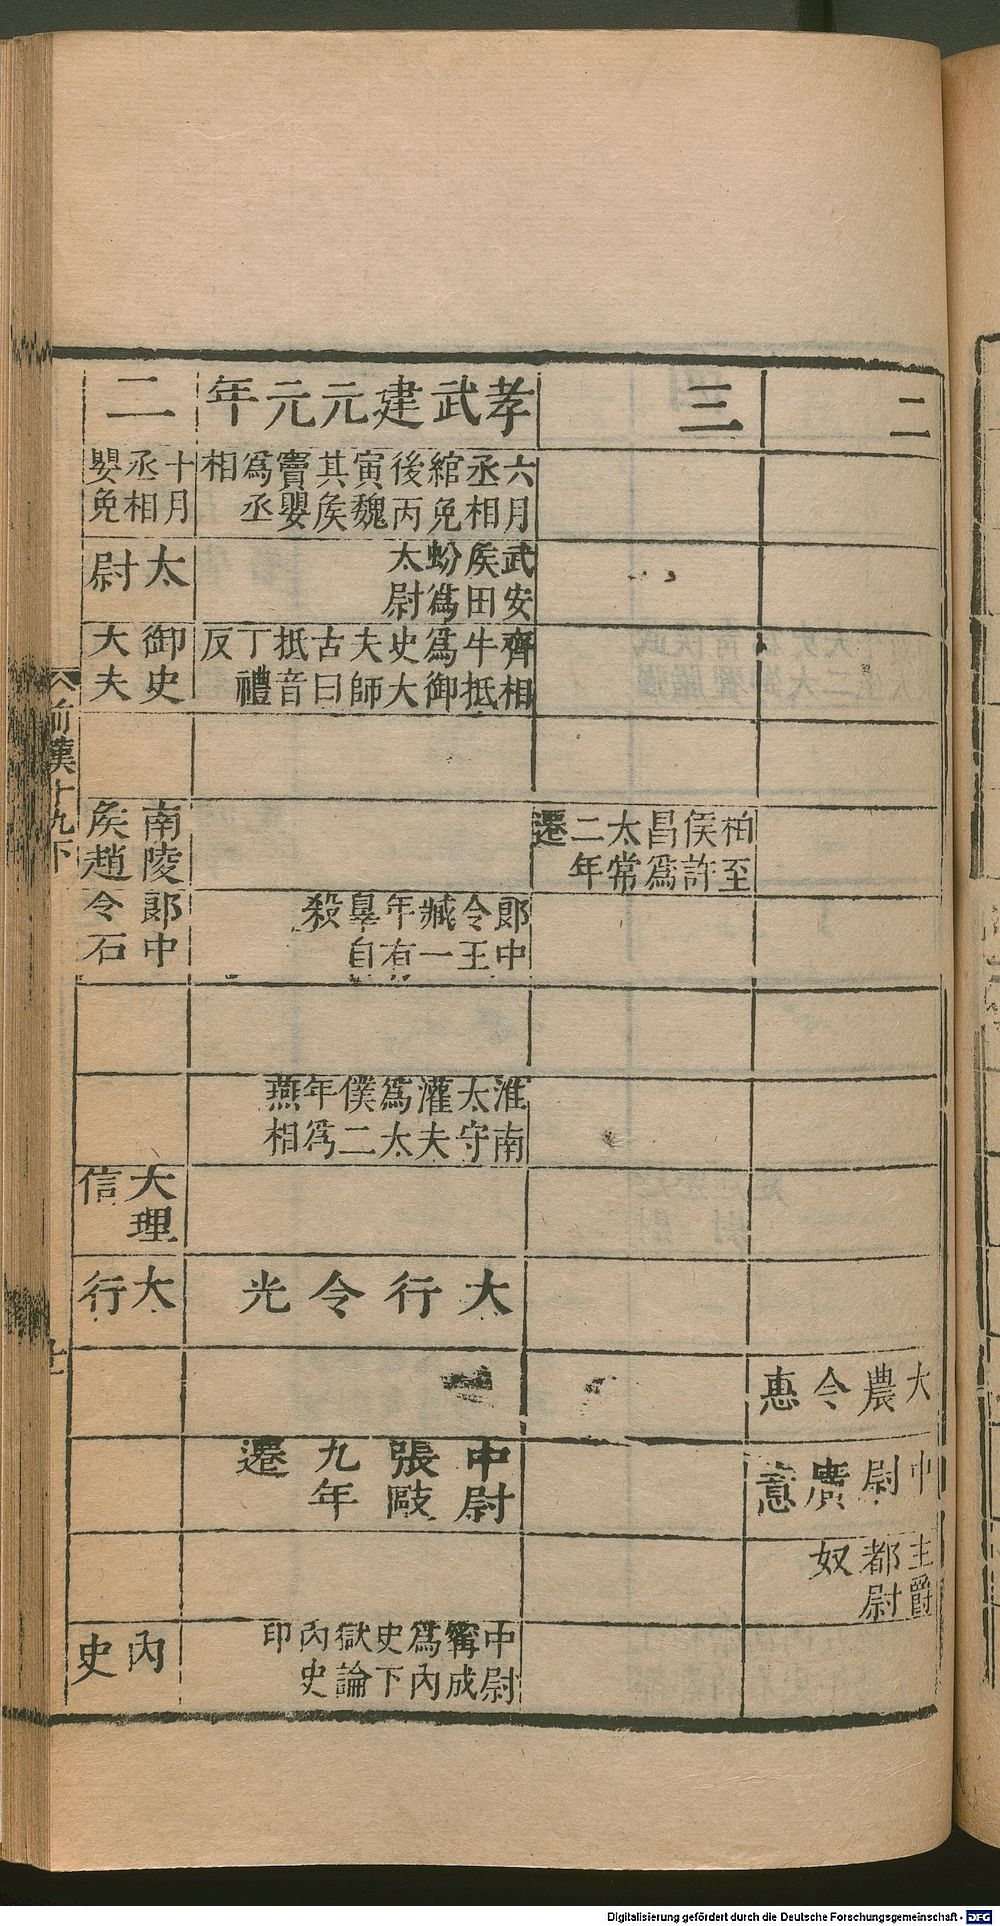 二
大農令惠
中尉廣意
主爵都尉奴
三
柏至侯許昌為太常二年遷
孝武建元元年
六月丞相綰免後丙寅魏其矦竇嬰爲丞相
武安矦田蚡爲太尉
齊相牛抵爲御史大夫師古曰抵音丁禮反
郎中令王臧一年有辠自殺
淮南太守灌夫爲太僕二年爲燕相
大行令光
中尉張敺九年遷
中尉甯成爲內史下獄論內史印
二
十月丞相嬰免
太尉
御史大夫
南陵矦趙
郎中令石
大理信
大行
內史
前漢十九下
Digitalisierung gefördert durch die Deutsche Forschungsgemeinschaft - DFG